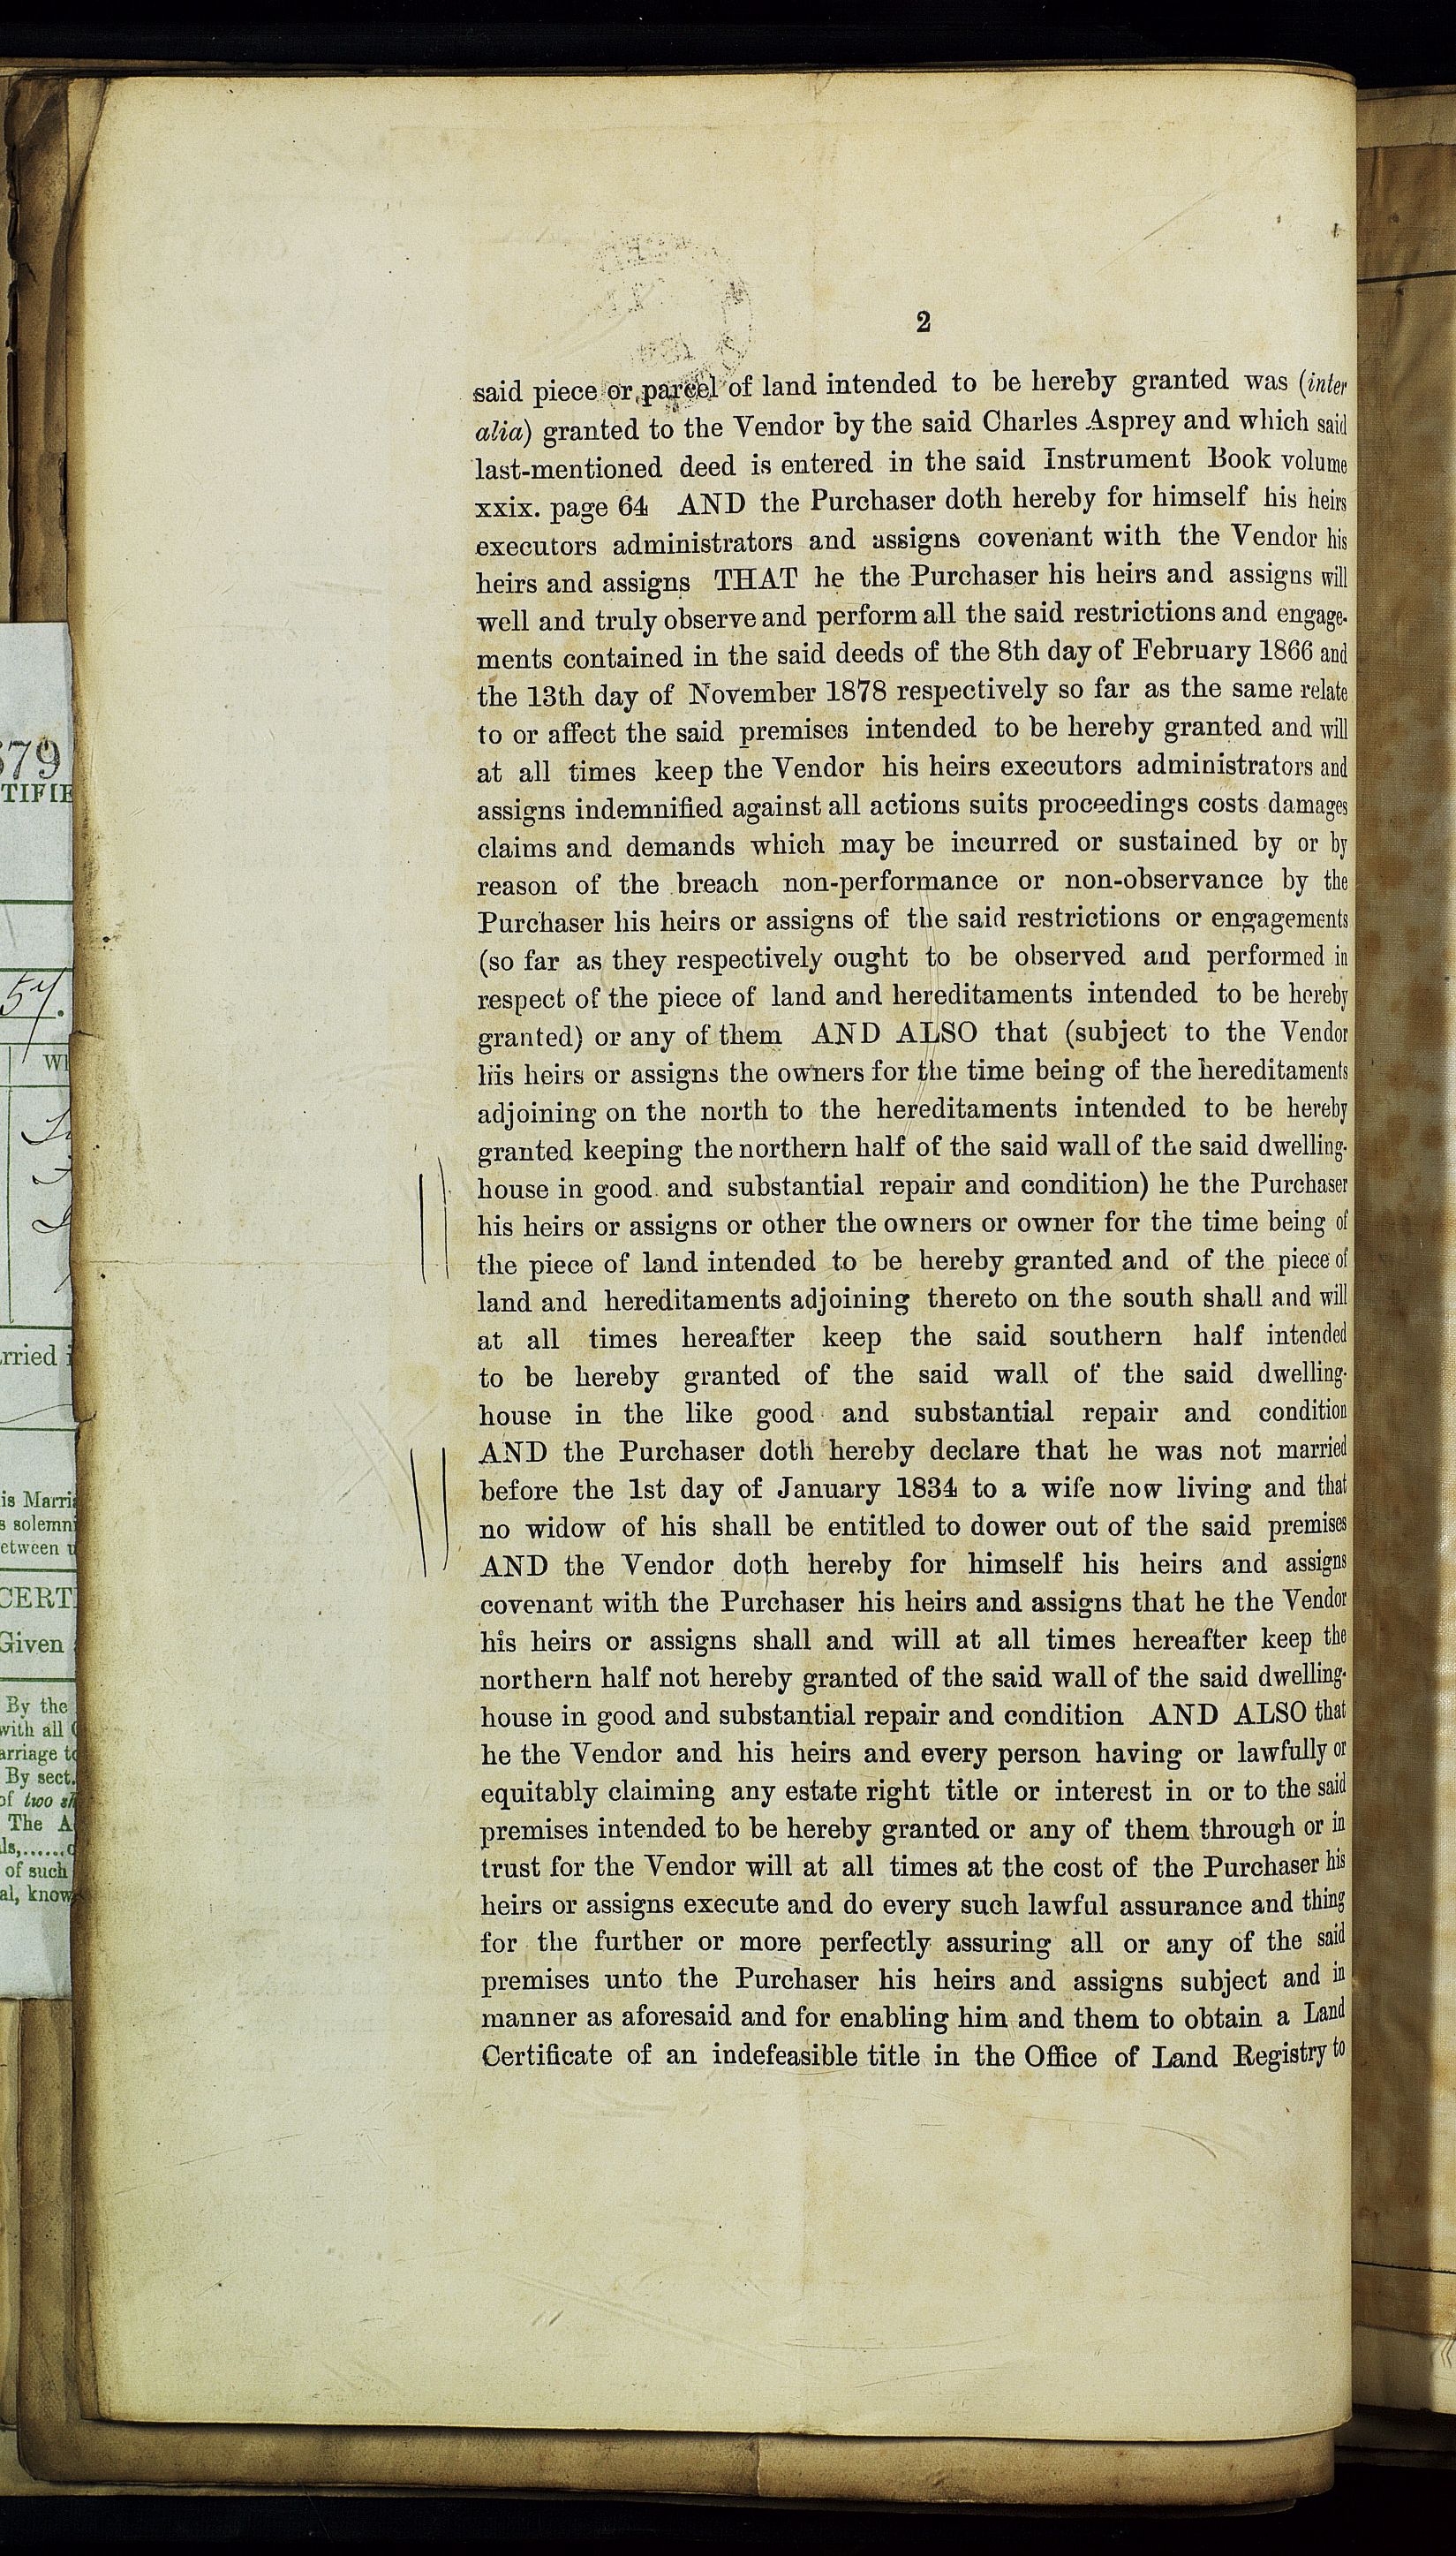 2
said piece or parcel of land intended to be hereby granted was (inter
alia) granted to the Vendor by the said Charles Asprey and which said
last-mentioned deed is entered in the said Instrument Book volume
xxix. page 64 AND the Purchaser doth hereby for himself his heirs
executors administrators and assigns covenant with the Vendor his
heirs and assigns THAT he the Purchaser his heirs and assigns will
well and truly observe and perform all the said restrictions and engage-
ments contained in the said deeds of the 8th day of February 1866 and
the 13th day of November 1878 respectively so far as the same relate
to or affect the said premises intended to be hereby granted and will
at all times keep the Vendor his heirs executors administrators and
assigns indemnified against all actions suits proceedings costs damages
claims and demands which may be incurred or sustained by or by
reason of the breach non-performance or non-observance by the
Purchaser his heirs or assigns of the said restrictions or engagements
(so far as they respectively ought to be observed and performed in
respect of the piece of land and hereditaments intended to be hereby
granted) or any of them AND ALSO that (subject to the Vendor
his heirs or assigns the owners for the time being of the hereditaments
adjoining on the north to the hereditaments intended to be hereby
granted keeping the northern half of the said wall of the said dwelling-
house in good and substantial repair and condition) he the Purchaser
his heirs or assigns or other the owners or owner for the time being of
the piece of land intended to be hereby granted and of the piece of
land and hereditaments adjoining thereto on the south shall and will
at all times hereafter keep the said southern half intended
to be hereby granted of the said wall of the said dwelling-
house in the like good and substantial repair and condition
AND the Purchaser doth hereby declare that he was not married
before the 1st day of January 1834 to a wife now living and that
no widow of his shall be entitled to dower out of the said premises
AND the Vendor doth hereby for himself his heirs and assigns
covenant with the Purchaser his heirs and assigns that he the Vendor
his heirs or assigns shall and will at all times hereafter keep the
northern half not hereby granted of the said wall of the said dwelling-
house in good and substantial repair and condition AND ALSO that
he the Vendor and his heirs and every person having or lawfully or
equitably claiming any estate right title or interest in or to the said
premises intended to be hereby granted or any of them through or in
trust for the Vendor will at all times at the cost of the Purchaser his
heirs or assigns execute and do every such lawful assurance and thing
for the further or more perfectly assuring all or any of the said
premises unto the Purchaser his heirs and assigns subject and in
manner as aforesaid and for enabling him and them to obtain a Land
Certificate of an indefeasible title in the Office of Land Registry to